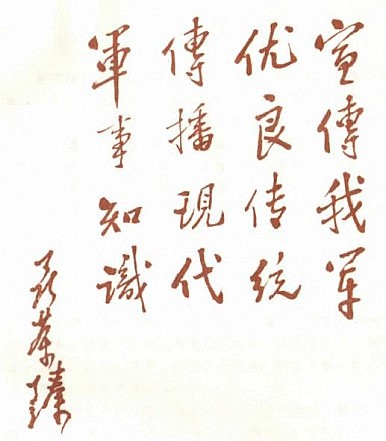 宣傳我军
优良传统
傳播現代
軍事知識
聂荣臻